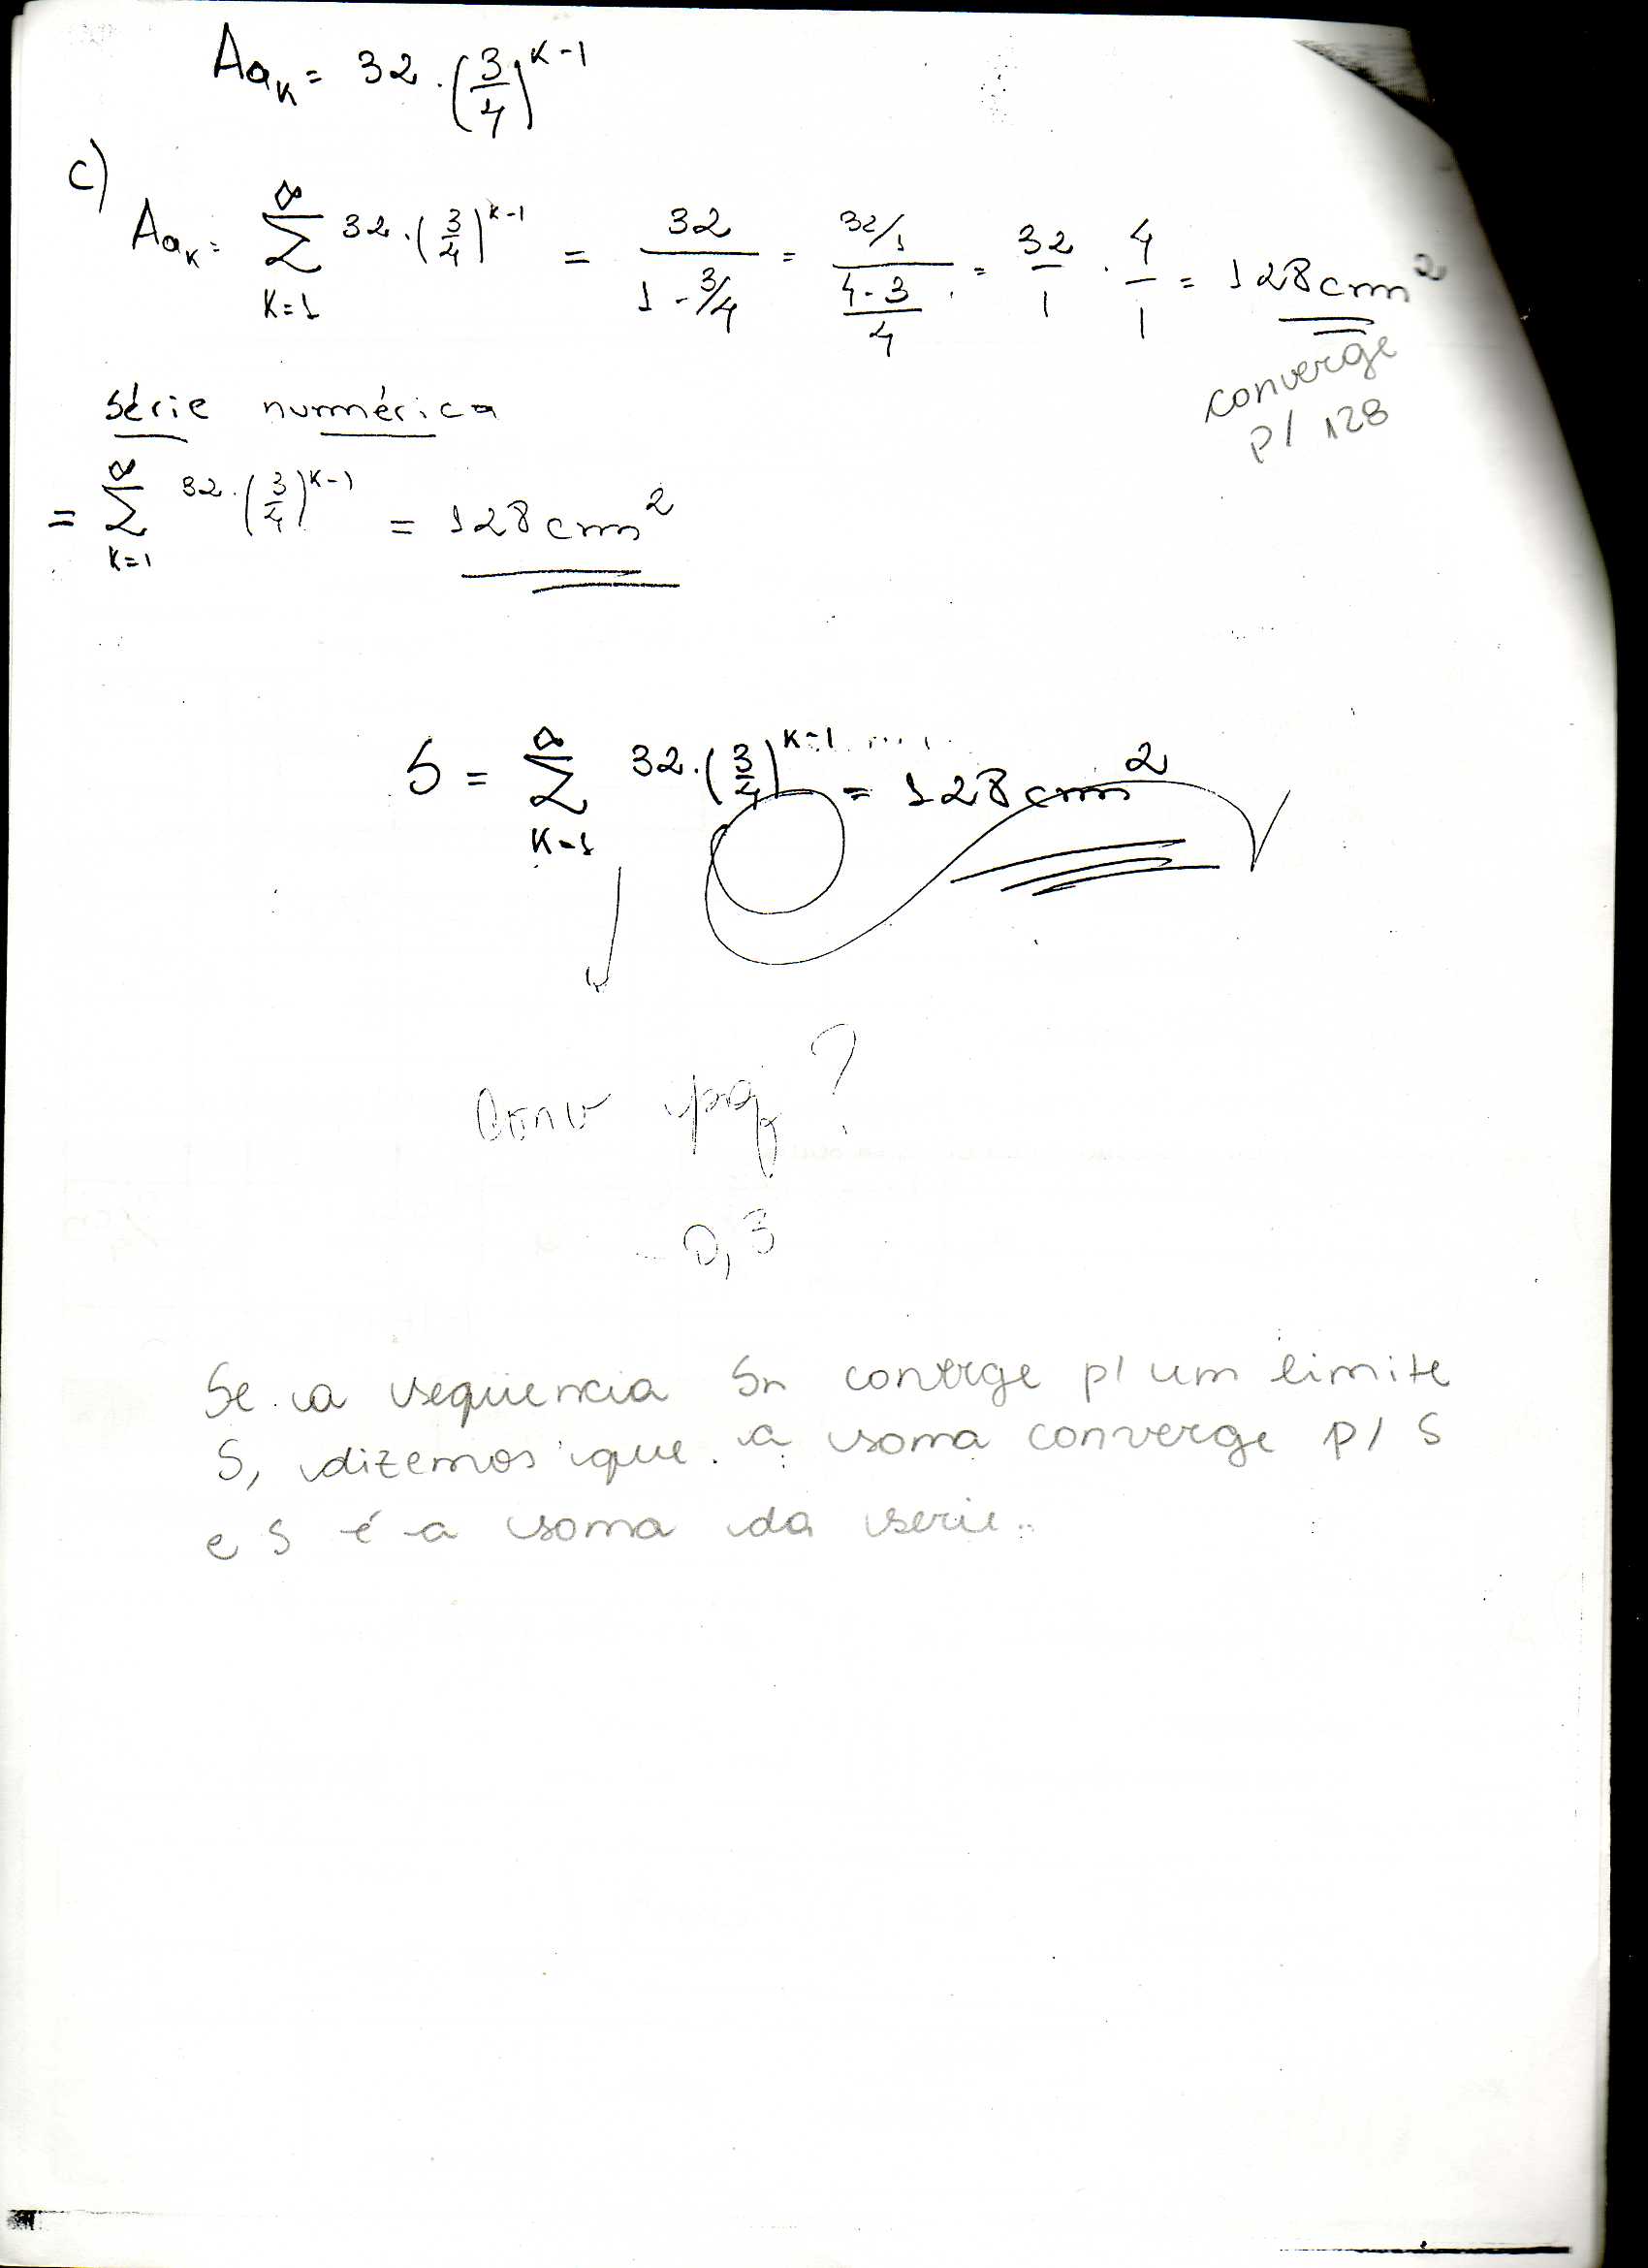 Aaₖ = 32 · (3/4)^(k-1)
c)
Aaₖ = ∑_{K=1}^{∞} 32 · (3/4)^(k-1) = 32 / (1 - 3/4) = (32/1) / ((4-3)/4) = 32/1 · 4/1 = 128 cm²
converge
p/ 128
série numérica
= ∑_{K=1}^{∞} 32 · (3/4)^(K-1) = 128 cm²
S = ∑_{K=1}^{∞} 32 · (3/4)^(K-1) = 128 cm²
pq ?
- 0,3
Se a seqüencia Sn converge p/ um limite
S, dizemos que a soma converge p/ S
e S é a soma da serie.